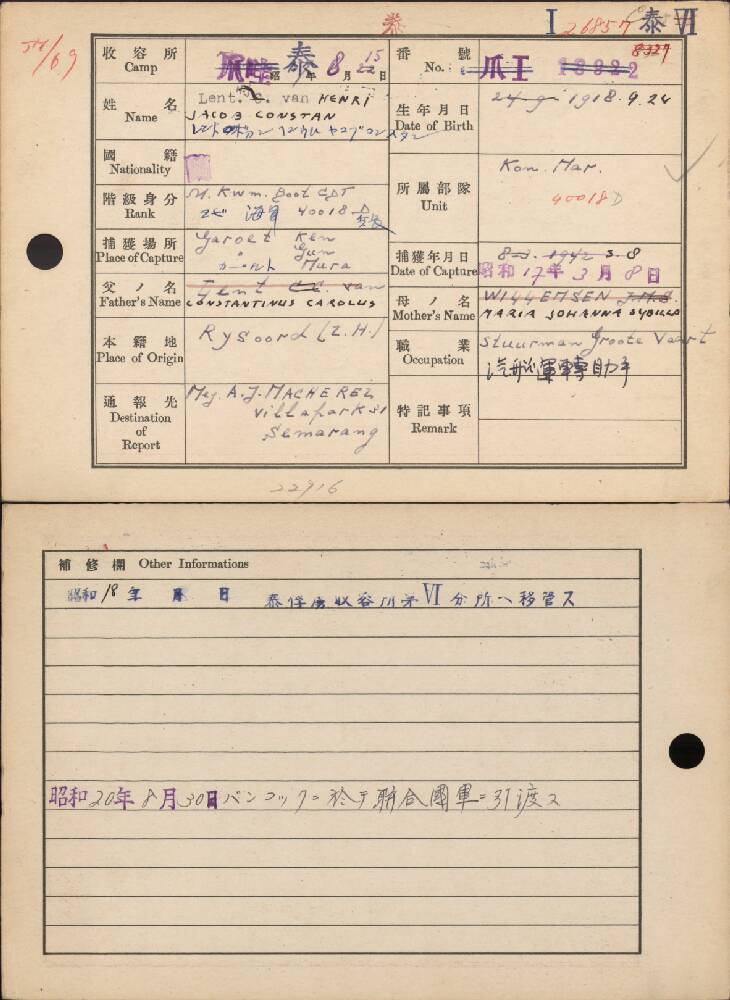 I 26857 泰 VI
8327
收容所 Camp 爪哇 泰 昭 年 8 月 15 22 日
番號 No. 爪 I 18922
姓名 Name Lent. C. van HENRI
JACOB CONSTAN
生年月日 Date of Birth 24-9-1918.9.24
國籍 Nationality
所屬部隊 Unit Kon. Mar.
40018 D
階級身分 Rank St. Kwm. Boot CDT
海軍 40018 D
捕獲場所 Place of Capture Garoet Ken
ガールト Mura
捕獲年月日 Date of Capture 8-3-1942-3-8
昭和17年3月8日
父ノ名 Father's Name Lent C. van
CONSTANTINUS CAROLUS
母ノ名 Mother's Name WILLEMSEN J.M.S.
MARIA JOHANNA SYBILLA
本籍地 Place of Origin Rysoord (Z.H.)
職業 Occupation Stuurman Groote Vaart
汽船運轉助手
通報先 Destination of Report Mej. A.J. MACHEREL
Villapark 31
Semarang
特記事項 Remark
22916
補修欄 Other Informations
昭和18年 月 日 泰俘虜收容所第VI分所ヘ移管ス
昭和20年8月30日バンコックニ於テ聯合國軍ニ引渡ス